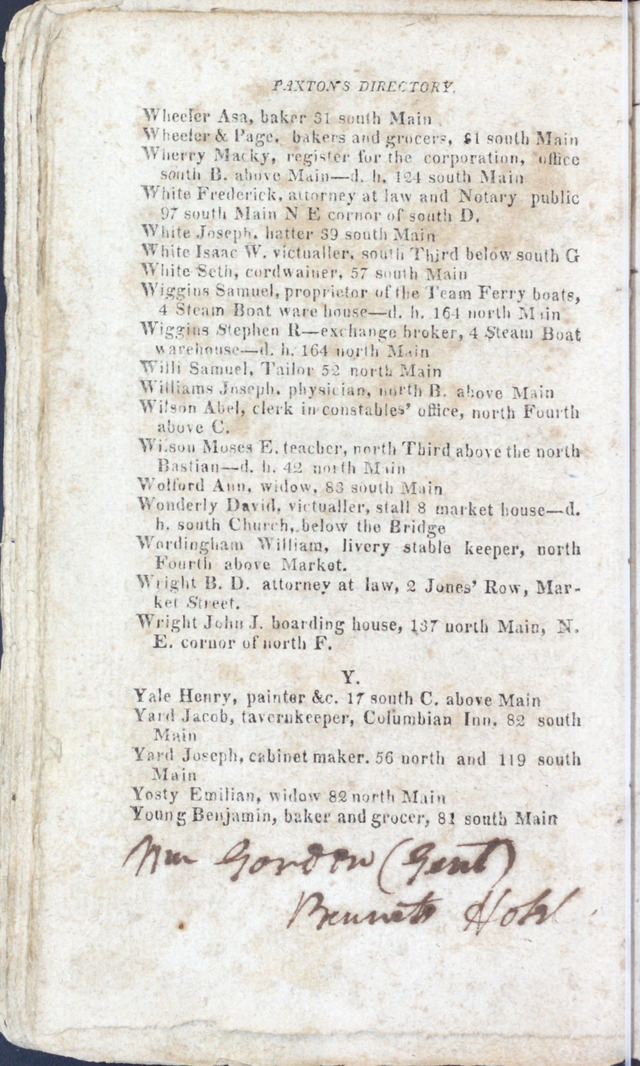 PAXTON'S DIRECTORY.
Wheeler Asa, baker 31 south Main
Wheeler & Page. bakers and grocers, 81 south Main
Wherry Macky, register for the corporation, office
south B. above Main—d. h. 124 south Main
White Frederick, attorney at law and Notary public
97 south Main N E cornor of south D.
White Joseph. hatter 39 south Main
White Isaac W. victualler, south Third below south G
White Seth, cordwainer, 57 south Main
Wiggins Samuel, proprietor of the Team Ferry boats,
4 Steam Boat ware house—d. h. 164 north Main
Wiggins Stephen R—exchange broker, 4 Steam Boat
warehouse—d. h. 164 north Main
Willi Samuel, Tailor 52 north Main
Williams Joseph. physician, north B. above Main
Wilson Abel, clerk in constables' office, north Fourth
above C.
Wilson Moses E. teacher, north Third above the north
Bastian—d. h. 42 north Main
Wolford Ann, widow, 83 south Main
Wonderly David, victualler, stall 8 market house—d.
h. south Church, below the Bridge
Wordingham William, livery stable keeper, north
Fourth above Market.
Wright B. D. attorney at law, 2 Jones' Row, Mar-
ket Street.
Wright John J. boarding house, 137 north Main, N.
E. cornor of north F.
Y.
Yale Henry, painter &c. 17 south C. above Main
Yard Jacob, tavernkeeper, Columbian Inn. 82 south
Main
Yard Joseph, cabinet maker. 56 north and 119 south
Main
Yosty Emilian, widow 82 north Main
Young Benjamin, baker and grocer, 81 south Main
Wm Gordon (Gent)
Bennett